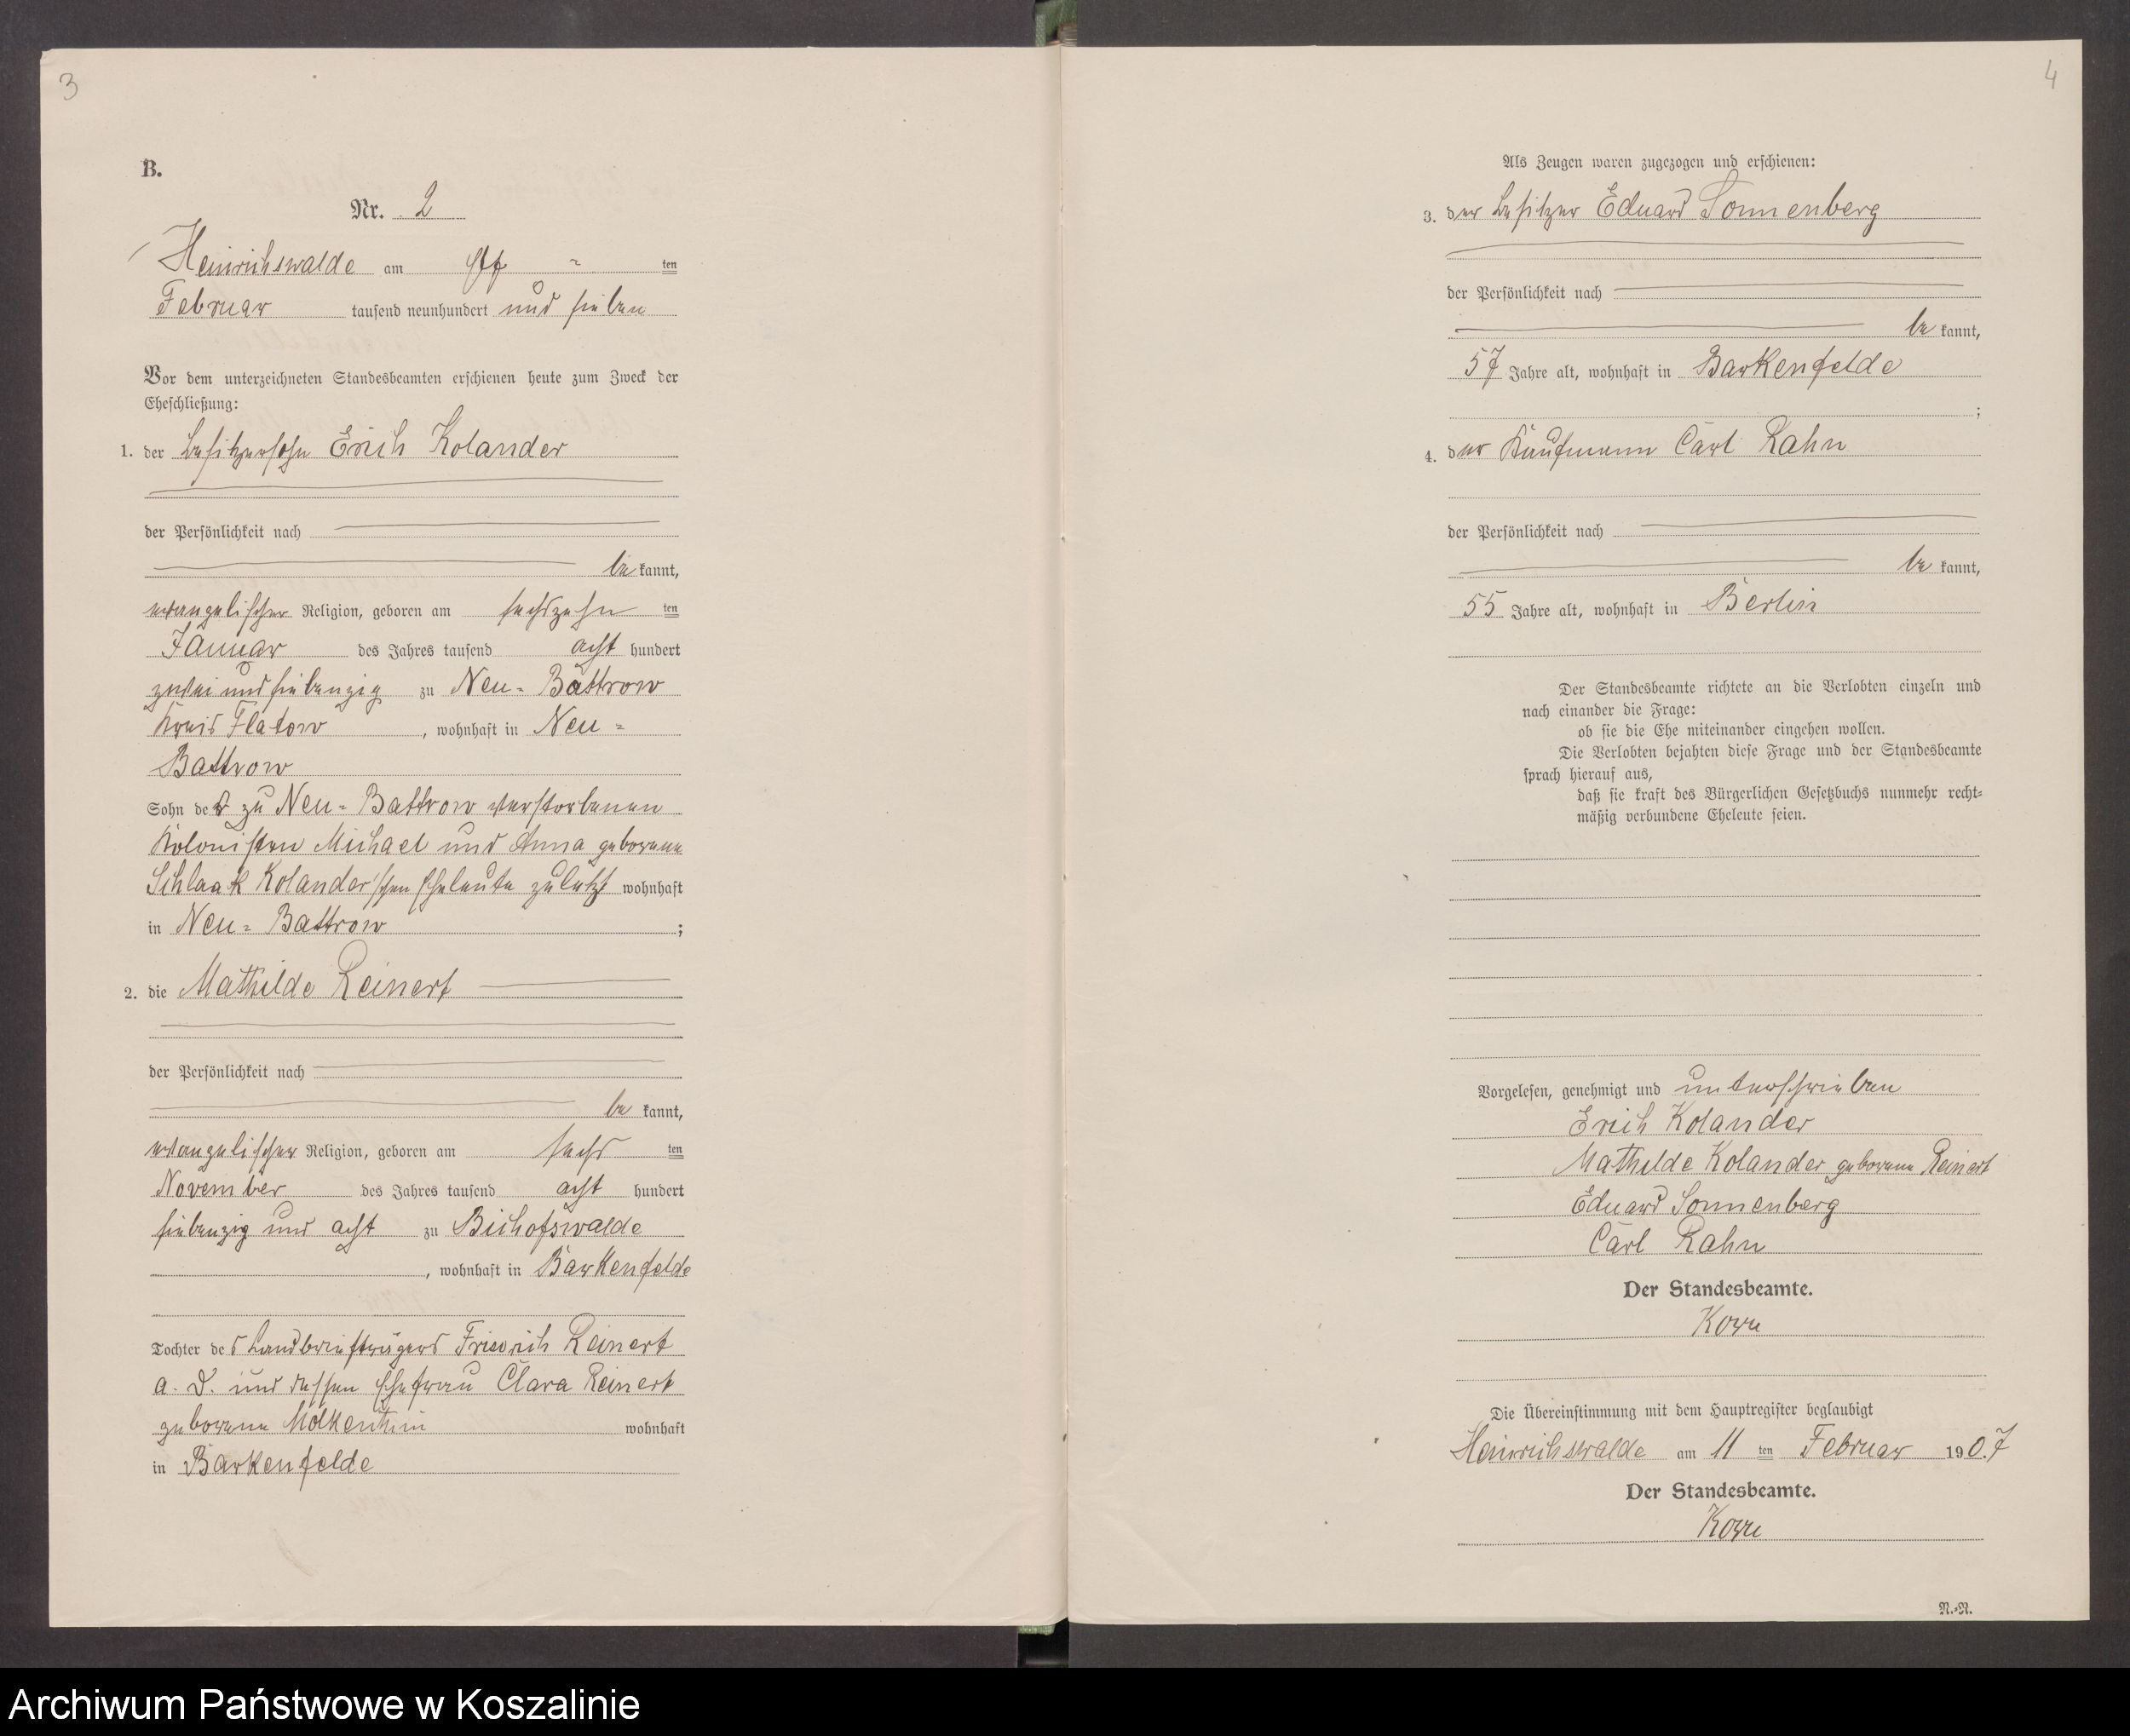 3
B.
Nr. 2
Heinrichswalde am elf ten
Februar tausend neunhundert und sieben
Vor dem unterzeichneten Standesbeamten erschienen heute zum Zweck der
Eheschließung:
1. der Besitzersohn Erich Kolander
der Persönlichkeit nach
be kannt,
evangelischer Religion, geboren am sechszehn ten
Januar des Jahres tausend acht hundert
zwei und siebenzig zu Neu-Battrow
Kreis Flatow, wohnhaft in Neu-
Battrow
Sohn der zu Neu-Battrow verstorbenen
Kolonisten Michael und Anna geborene
Schlaak Kolander'schen Eheleute zuletzt wohnhaft
in Neu-Battrow;
2. die Mathilde Reinert
der Persönlichkeit nach
be kannt,
evangelischer Religion, geboren am sechs ten
November des Jahres tausend acht hundert
siebenzig und acht zu Bischofswalde
, wohnhaft in Barkenfelde
Tochter des Landbriefträgers Friedrich Reinert
a. D. und dessen Ehefrau Clara Reinert
geborene Molkenthin wohnhaft
in Barkenfelde
4
Als Zeugen waren zugezogen und erschienen:
3. der Besitzer Eduard Sonnenberg
der Persönlichkeit nach
be kannt,
57 Jahre alt, wohnhaft in Barkenfelde
;
4. der Kaufmann Carl Rahn
der Persönlichkeit nach
be kannt,
55 Jahre alt, wohnhaft in Berlin
Der Standesbeamte richtete an die Verlobten einzeln und
nach einander die Frage:
ob sie die Ehe miteinander eingehen wollen.
Die Verlobten bejahten diese Frage und der Standesbeamte
sprach hierauf aus,
daß sie kraft des Bürgerlichen Gesetzbuchs nunmehr recht-
mäßig verbundene Eheleute seien.
Vorgelesen, genehmigt und unterschrieben
Erich Kolander
Mathilde Kolander geborene Reinert
Eduard Sonnenberg
Carl Rahn
Der Standesbeamte.
Die Übereinstimmung mit dem Hauptregister beglaubigt
Heinrichswalde am 11 ten Februar 190.7
Der Standesbeamte.
N.-N.
Archiwum Państwowe w Koszalinie